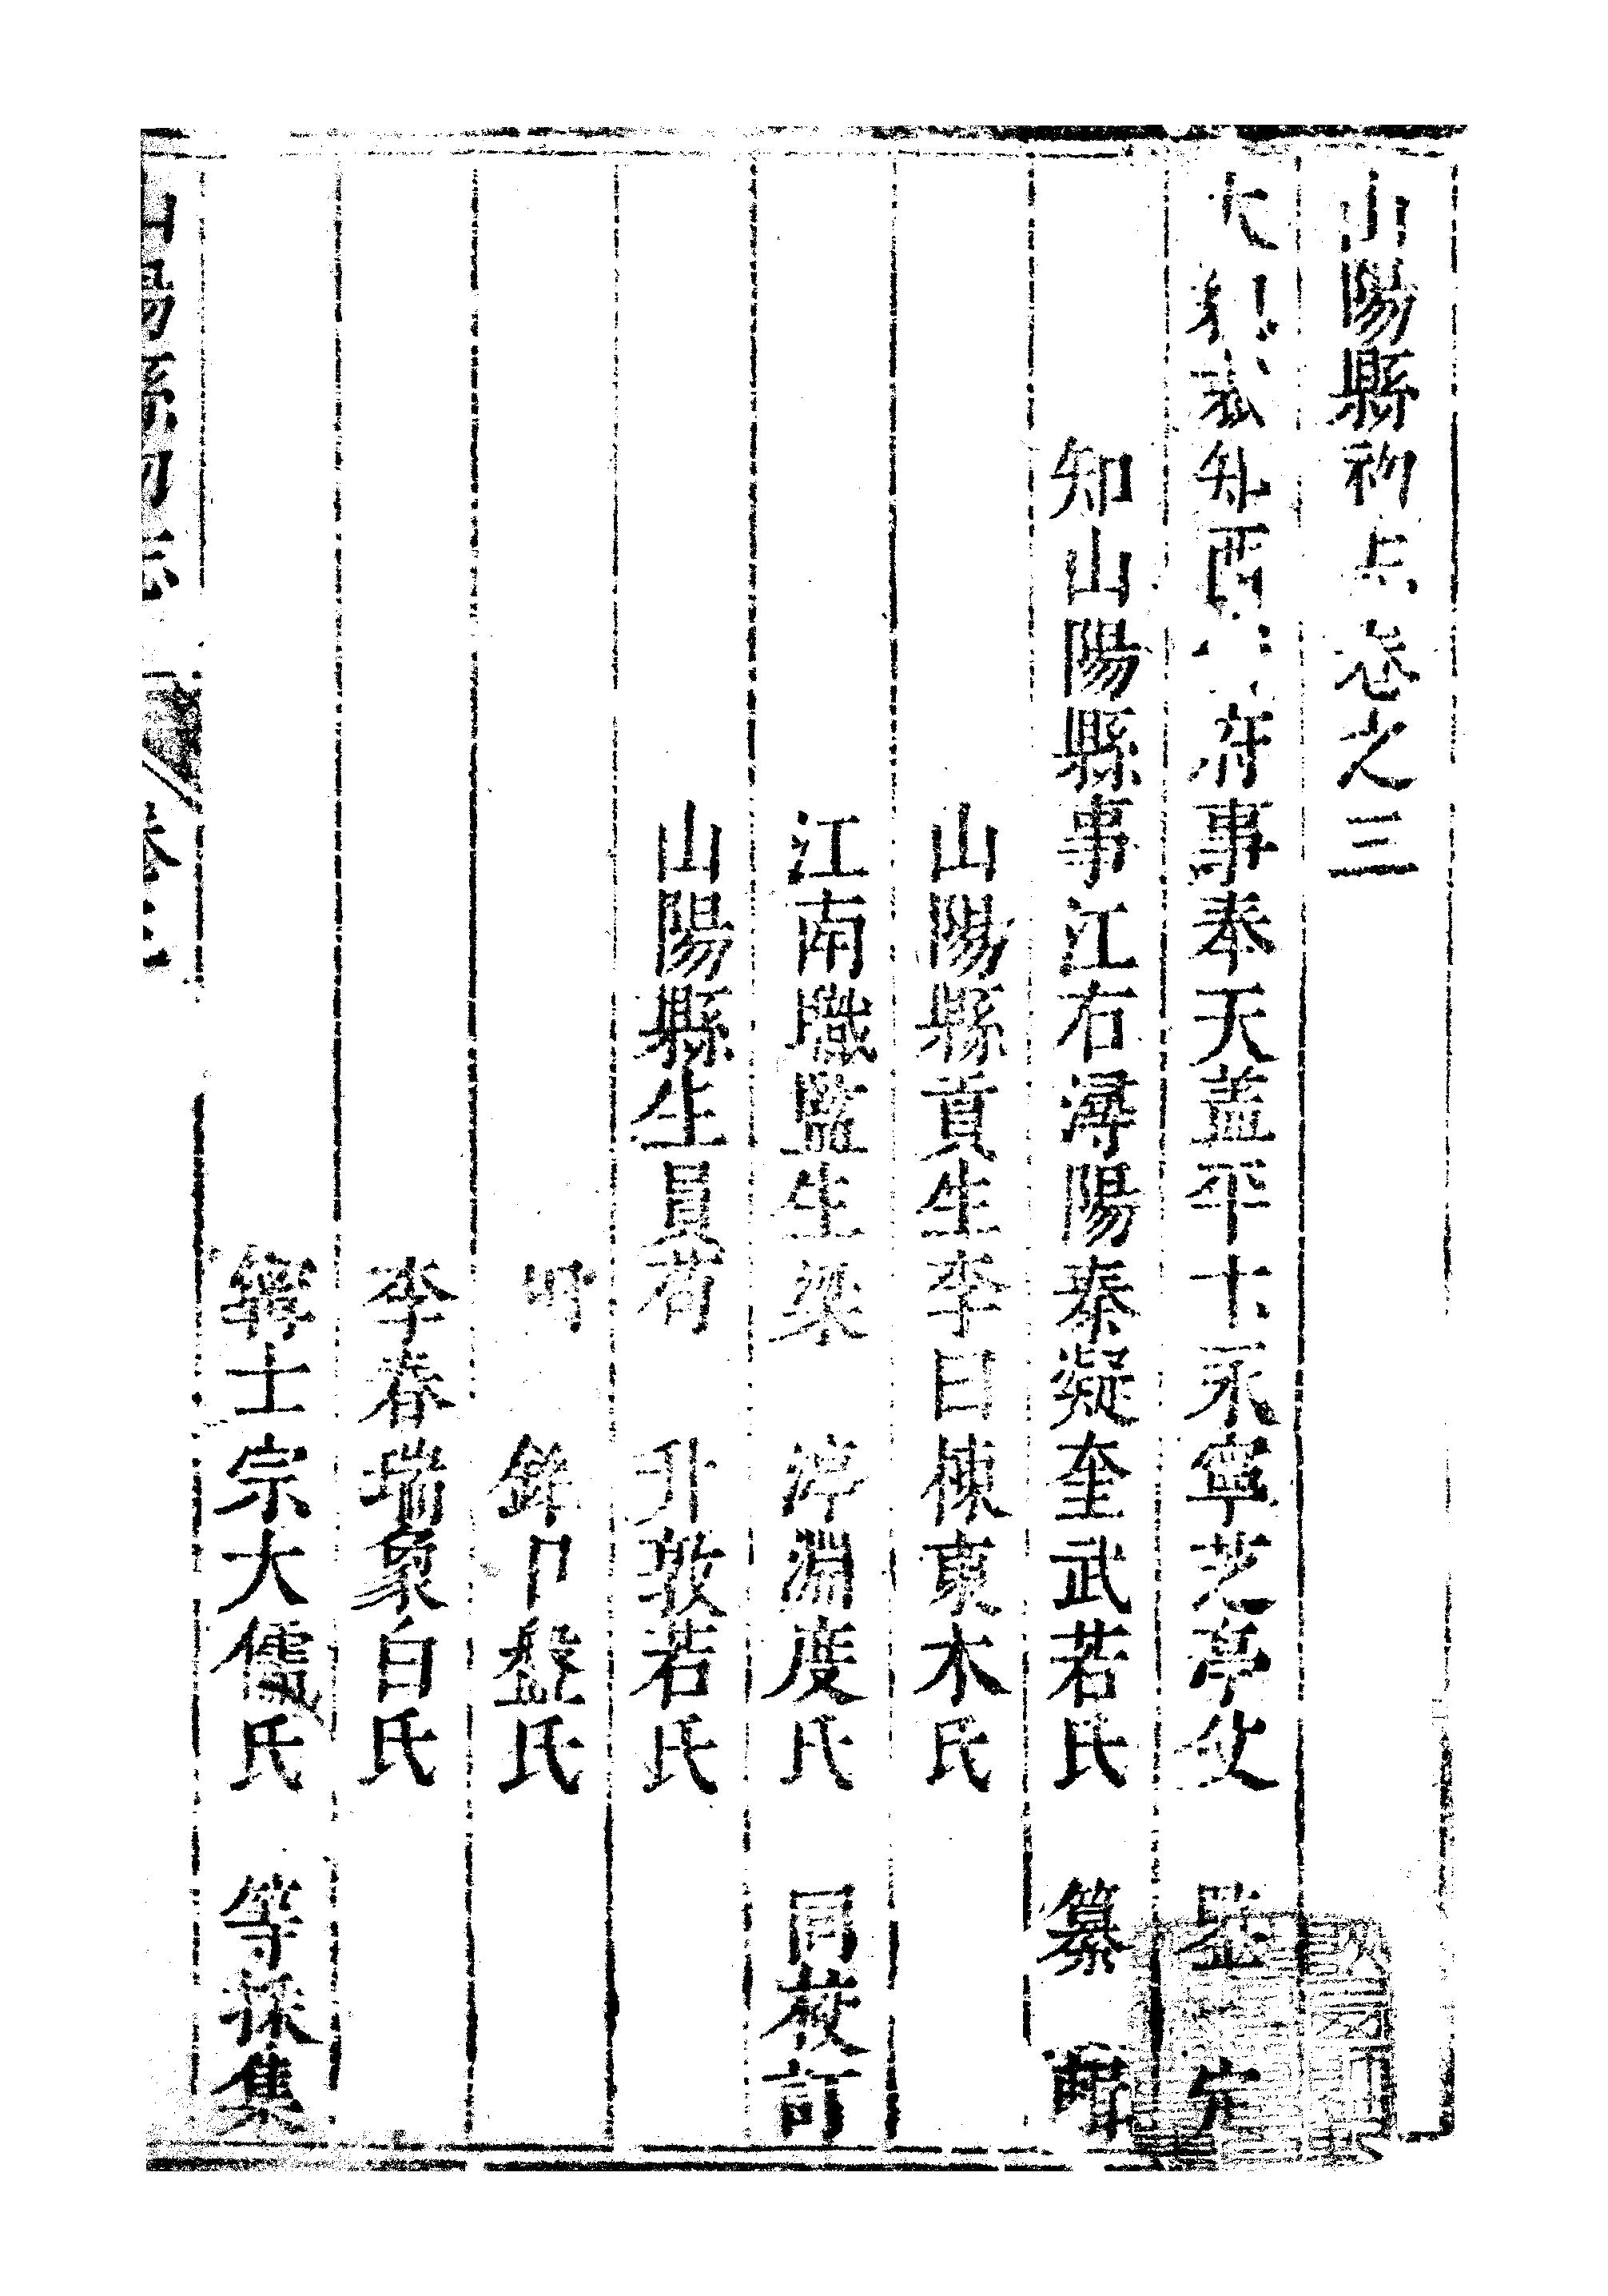 山陽縣初志卷之三
大知西府事奉天蓋平卞永寧芝亭父 鑒定
知山陽縣事江右潯陽秦凝奎武若氏 纂輯
山陽縣貢生李曰棟東木氏
江南職監生梁 渟淵度氏 同校訂
山陽縣生員苟 升敦若氏
鋒盤氏
李春瑞象白氏
甯士宗大儒氏 等採集
山陽縣初志 卷三